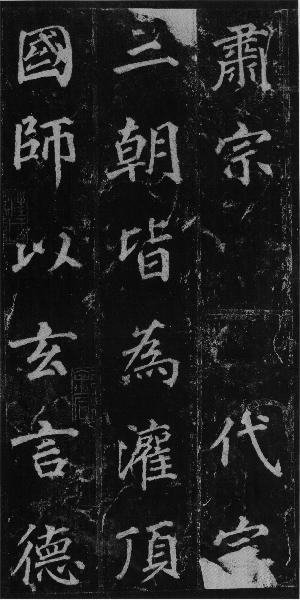 肅宗 代宗
三朝皆為灌頂
國師以玄言德